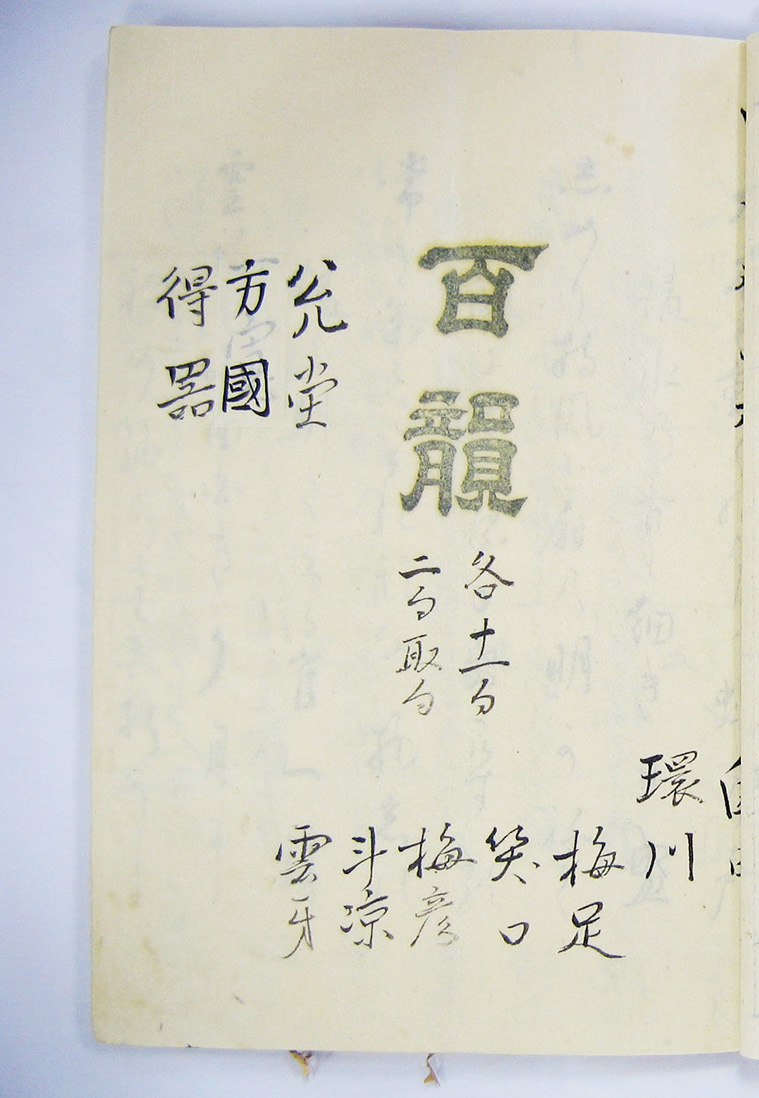 環川
梅足
笑口
百韻
各十一句
二句取句
梅彦
斗涼
雲牙
公允堂
方國
得器